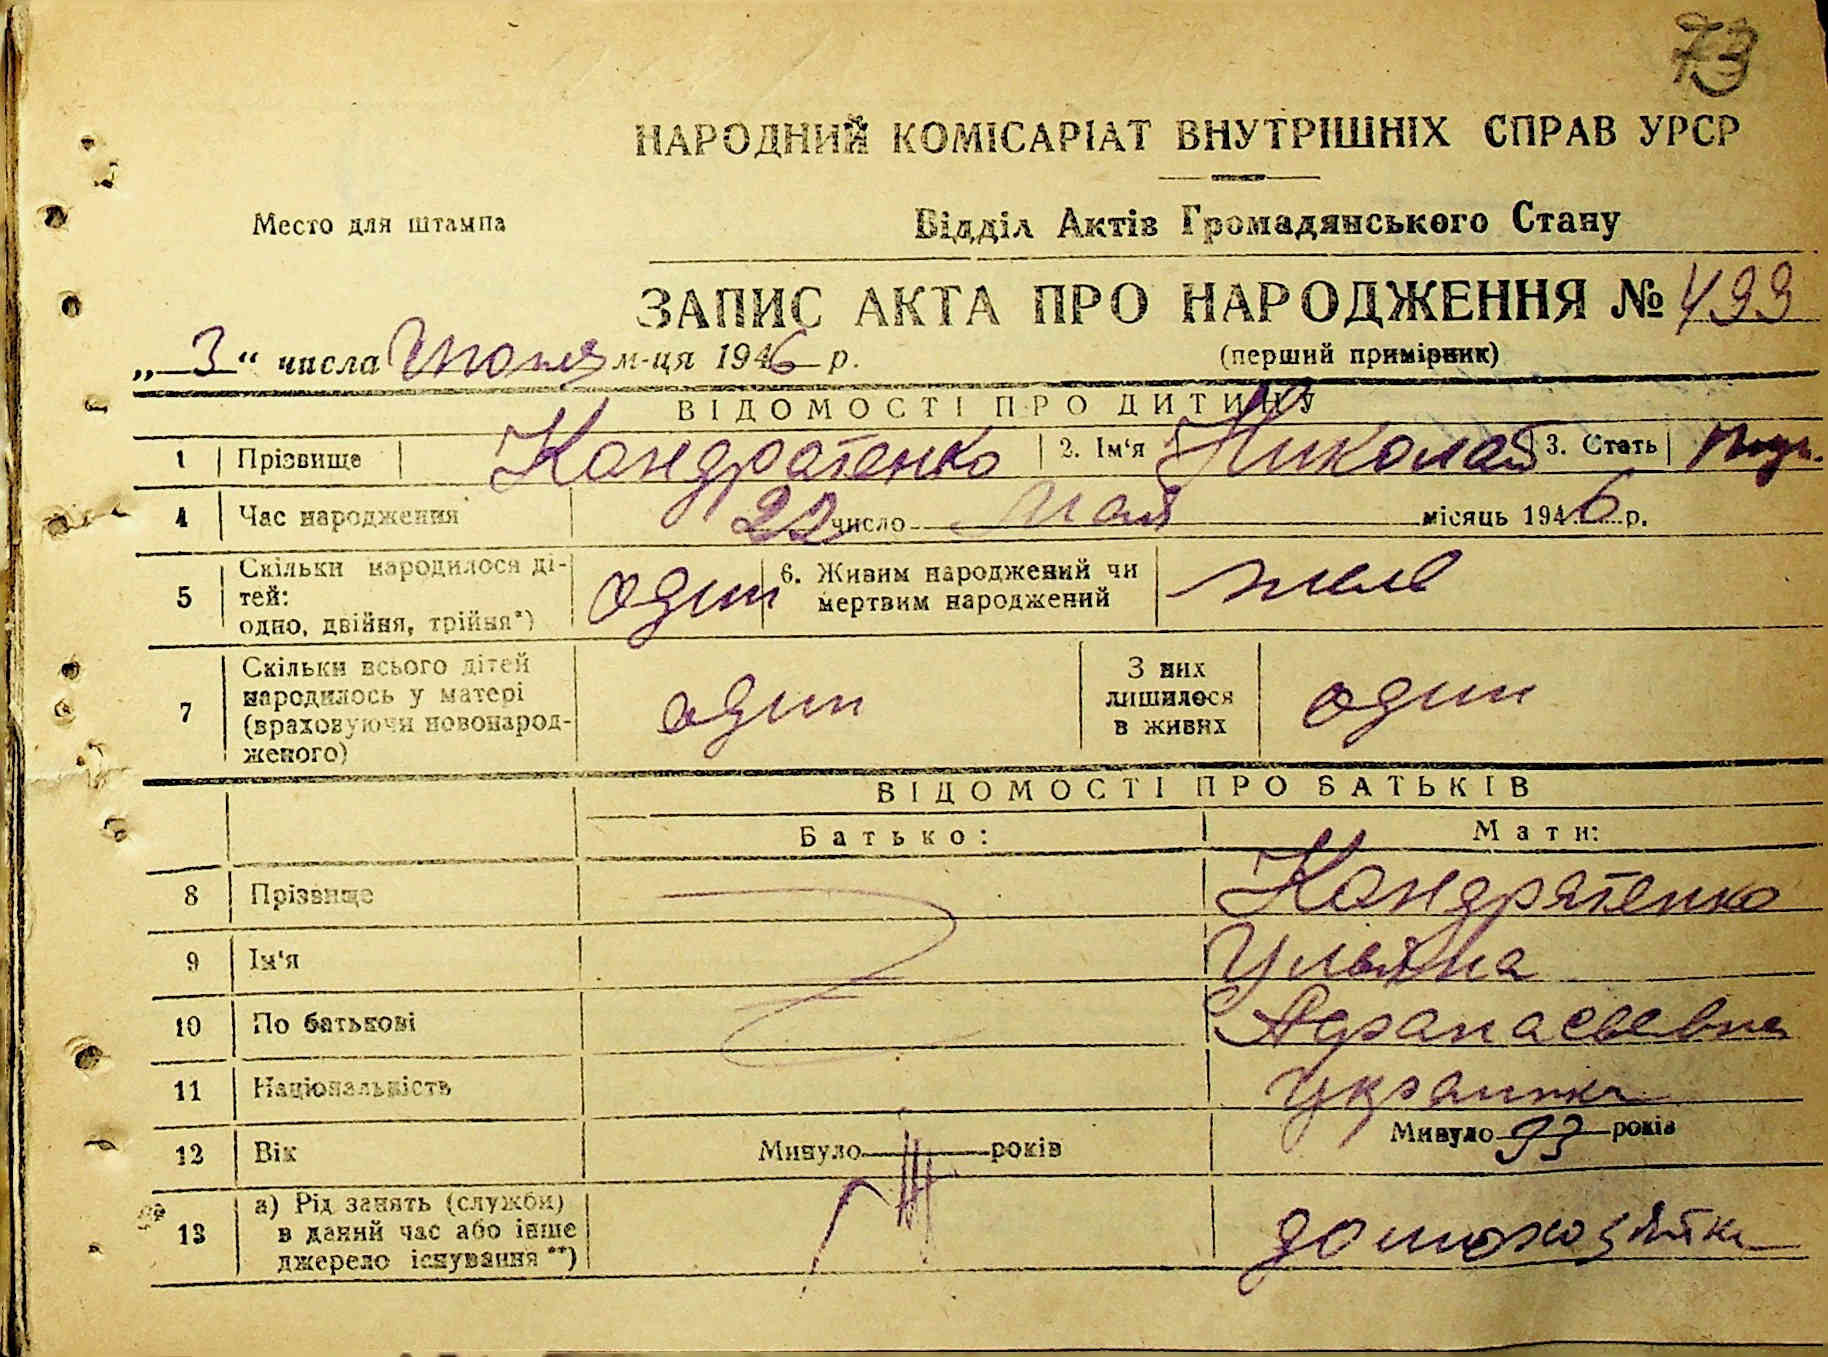 73
НАРОДНИЙ КОМІСАРІАТ ВНУТРІШНІХ СПРАВ УРСР
Место для штампа
Відділ Актів Громадянського Стану
ЗАПИС АКТА ПРО НАРОДЖЕННЯ № 499
„ 3 “ числа Июня м-ця 1946 р.
(перший примірник)
ВІДОМОСТІ ПРО ДИТИНУ
1 Прізвище Кондратенко 2. Ім‘я Николай 3. Стать муж.
4 Час народження 22 число Мая місяць 1946 р.
5 Скільки народилося ді-
тей:
одно, двійня, трійня*) один
6. Живим народжений чи
мертвим народжений
7 Скільки всього дітей
народилось у матері
(враховуючи новонарод-
женого) один
З них
лишилося
в живих один
ВІДОМОСТІ ПРО БАТЬКІВ
Батько: Мати:
8 Прізвище Кондратенко
9 Ім‘я Ульяна
10 По батькові Афанасьевна
11 Національність украинка
12 Вік Минуло років Минуло років
13 а) Рід занять (служби)
в даний час або інше
джерело існування **) домохозяйка